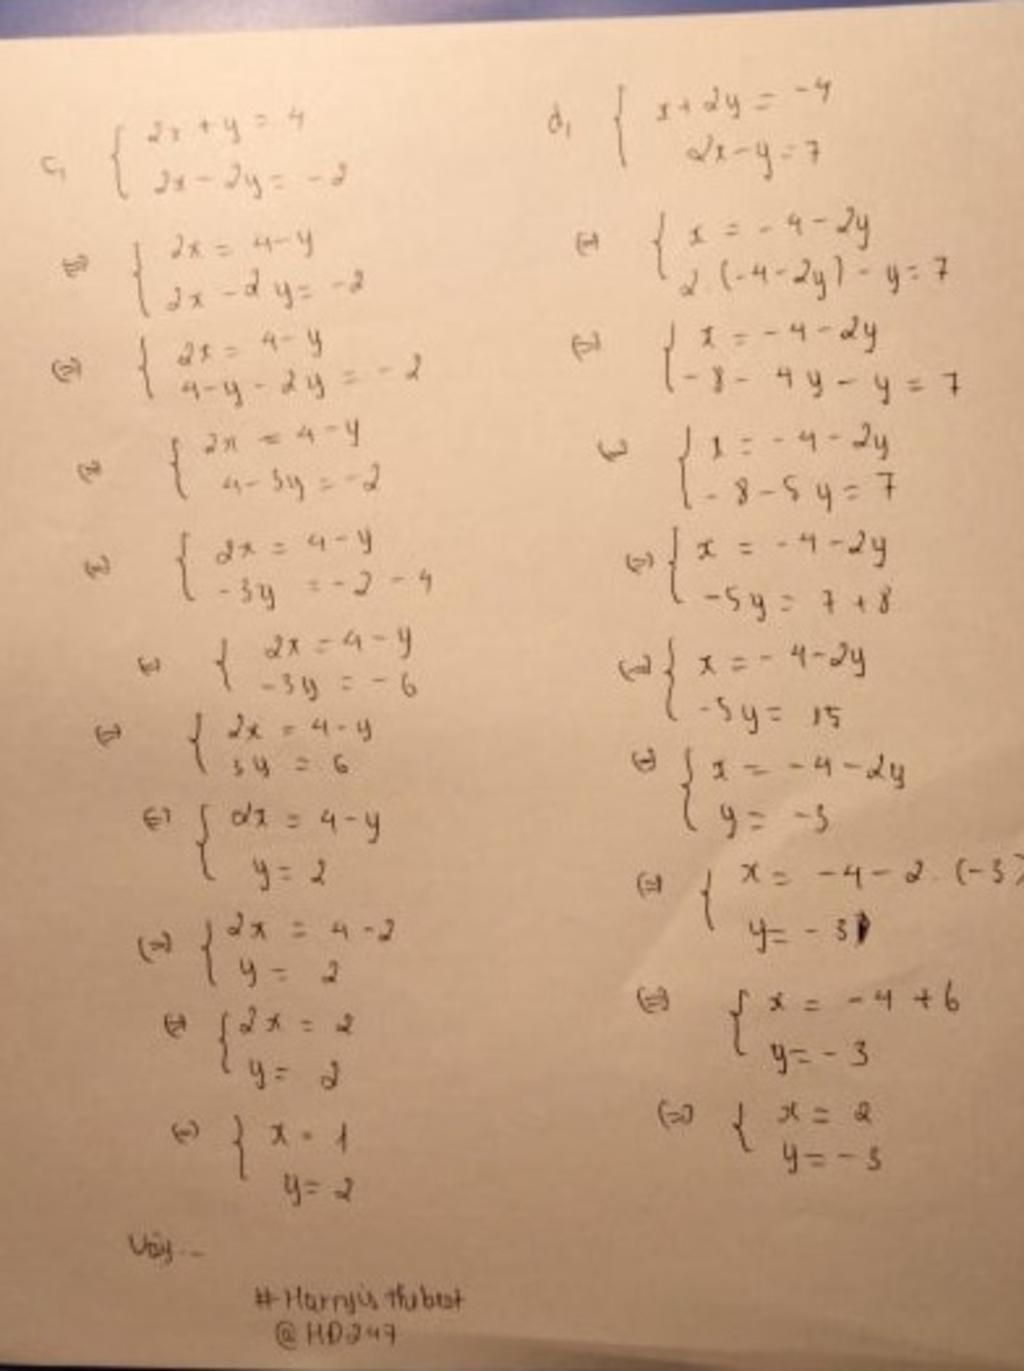 c, { 2x + y = 4
2x - 2y = -2
(=) { 2x = 4 - y
2x - 2y = -2
(=) { 2x = 4 - y
4 - y - 2y = -2
(=) { 2x = 4 - y
4 - 3y = -2
(=) { 2x = 4 - y
-3y = -2 - 4
(=) { 2x = 4 - y
-3y = -6
(=) { 2x = 4 - y
3y = 6
(=) { 2x = 4 - y
y = 2
(=) { 2x = 4 - 2
y = 2
(=) { 2x = 2
y = 2
(=) { x = 1
y = 2
Vậy...
d, { x + 2y = -4
2x - y = 7
(=) { x = -4 - 2y
2.(-4-2y) - y = 7
(=) { x = -4 - 2y
-8 - 4y - y = 7
(=) { x = -4 - 2y
-8 - 5y = 7
(=) { x = -4 - 2y
-5y = 7 + 8
(=) { x = -4 - 2y
-5y = 15
(=) { x = -4 - 2y
y = -3
(=) { x = -4 - 2.(-3)
y = -3
(=) { x = -4 + 6
y = -3
(=) { x = 2
y = -3
# Harry is the best
@HD247